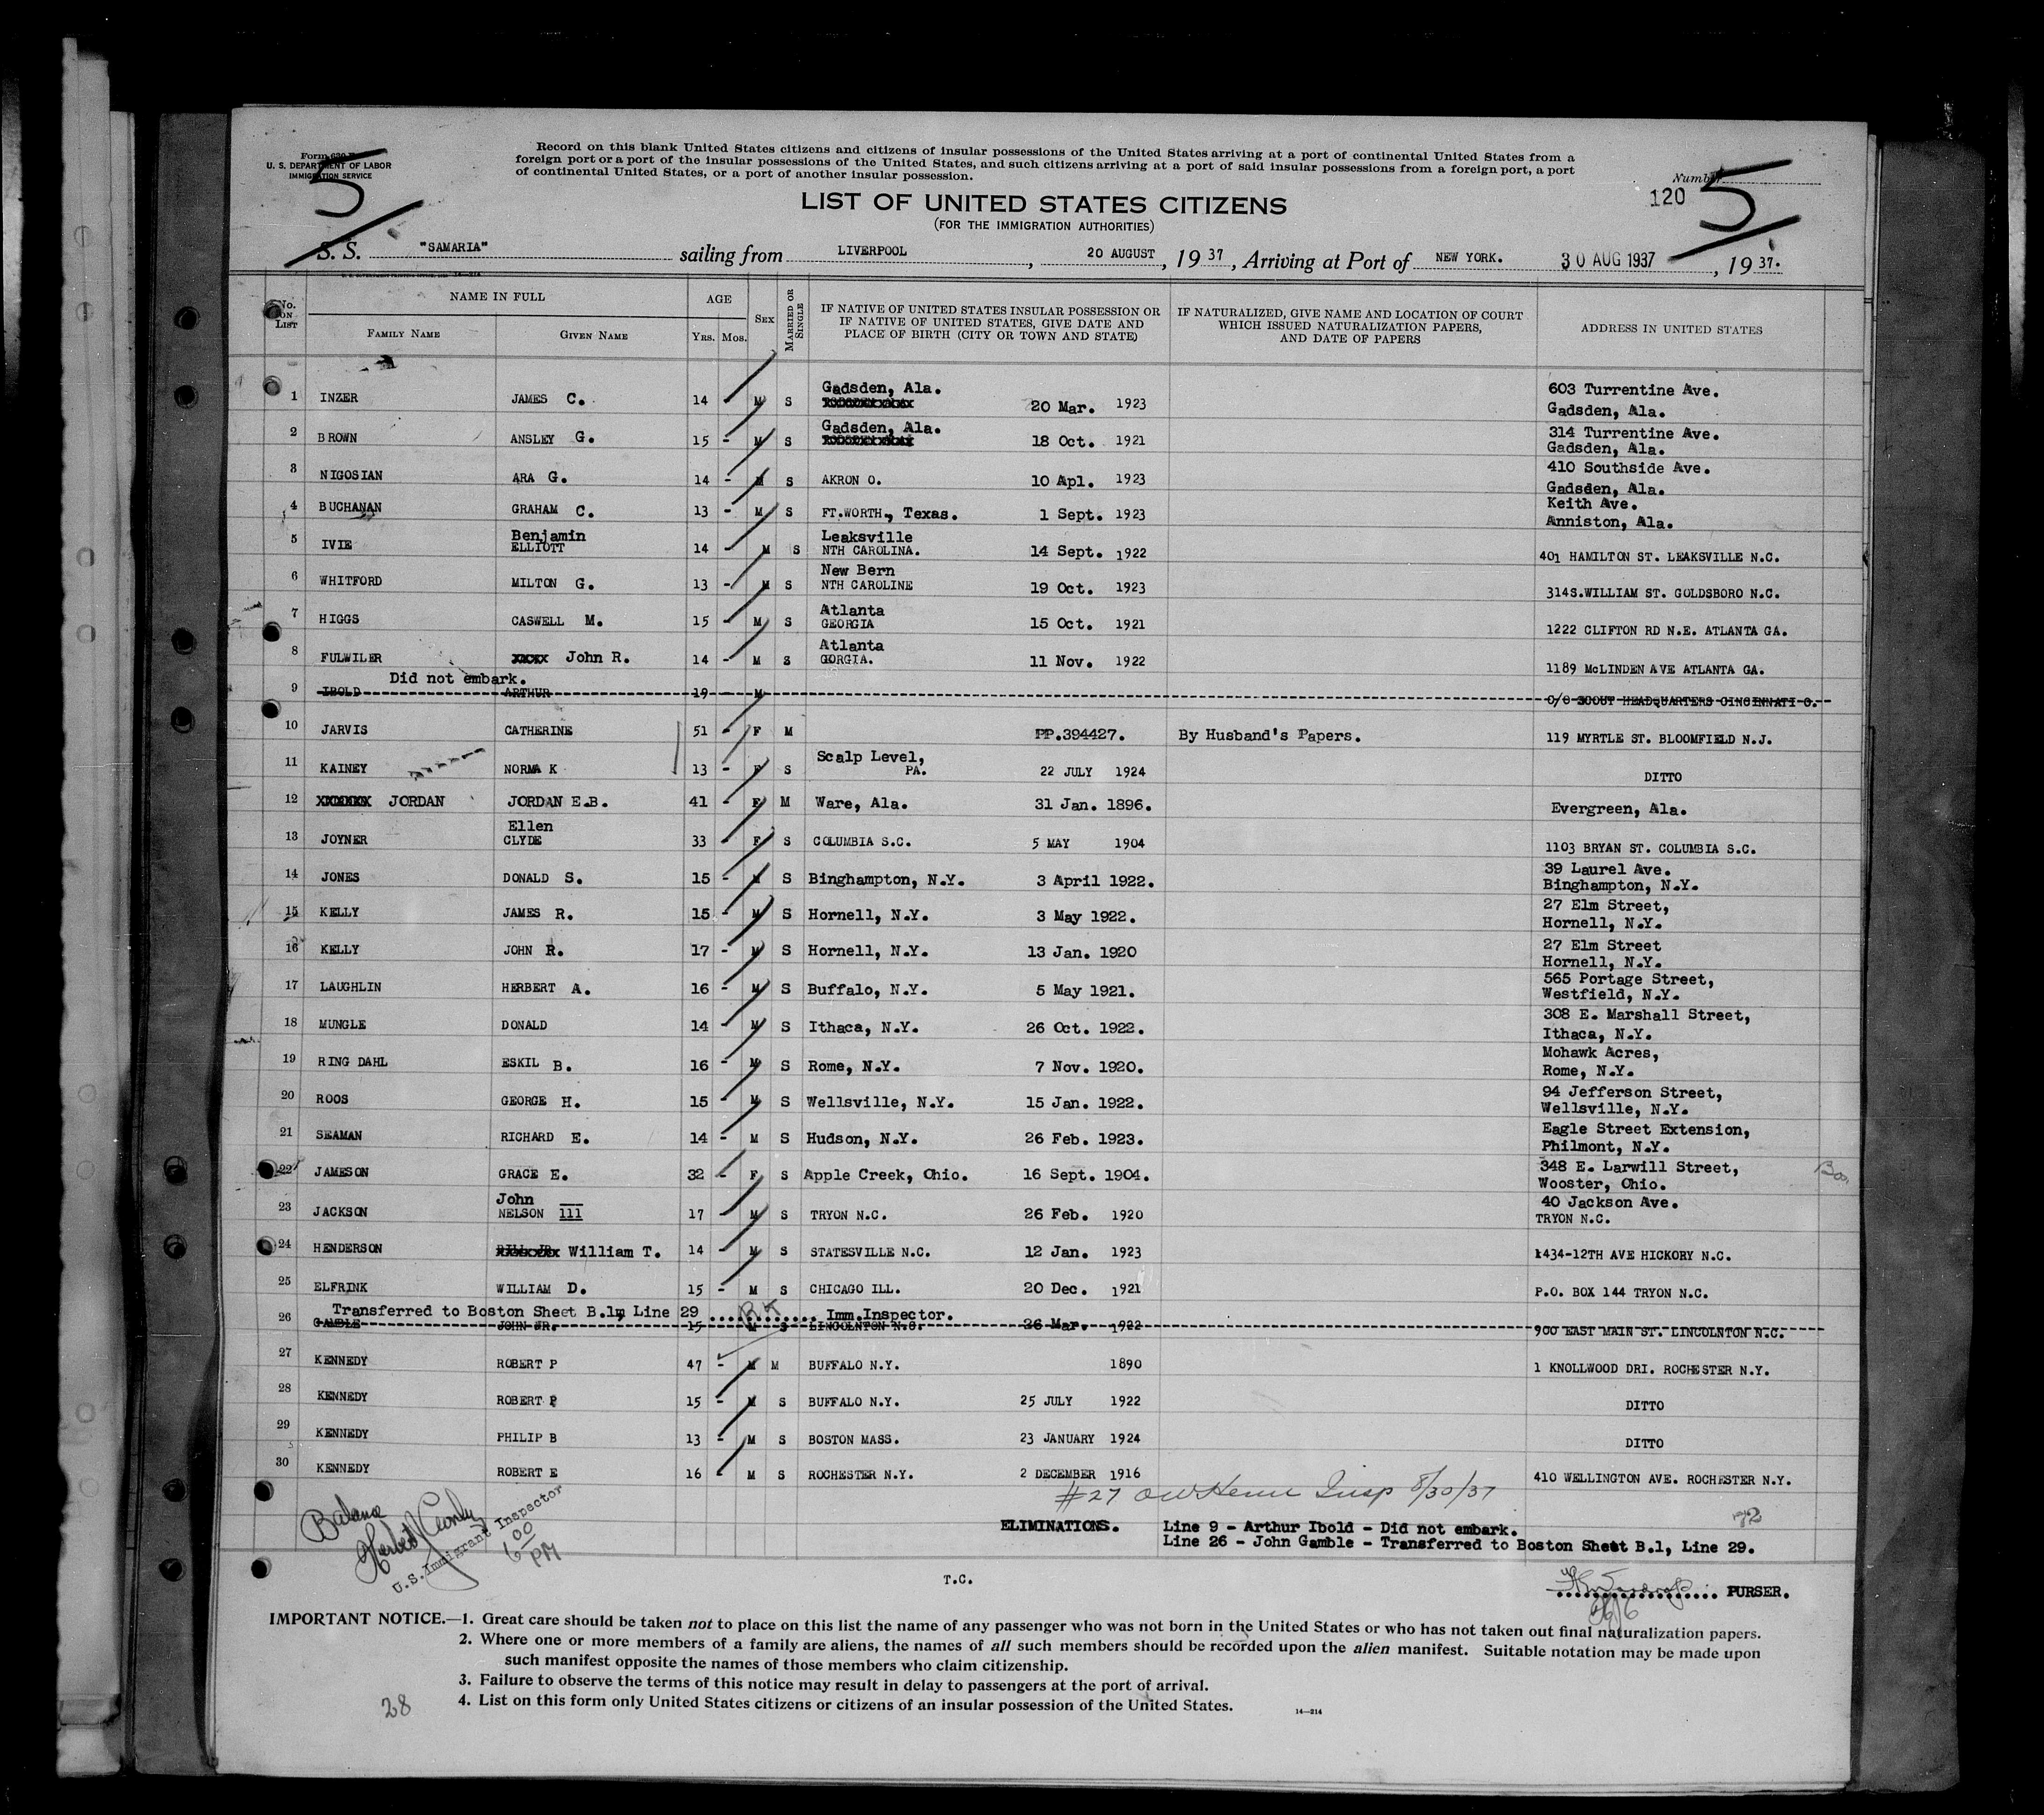 Form 630
U. S. DEPARTMENT OF LABOR
IMMIGRATION SERVICE
5
Record on this blank United States citizens and citizens of insular possessions of the United States arriving at a port of continental United States from a
foreign port or a port of the insular possessions of the United States, and such citizens arriving at a port of said insular possessions from a foreign port, a port
of continental United States, or a port of another insular possession.
Number
120
5
LIST OF UNITED STATES CITIZENS
(FOR THE IMMIGRATION AUTHORITIES)
S. S. "SAMARIA" sailing from LIVERPOOL, 20 AUGUST, 1937, Arriving at Port of NEW YORK. 30 AUG 1937, 1937.
No. on List
NAME IN FULL
FAMILY NAME GIVEN NAME
AGE
Yrs. Mos.
SEX
MARRIED OR SINGLE
IF NATIVE OF UNITED STATES INSULAR POSSESSION OR
IF NATIVE OF UNITED STATES, GIVE DATE AND
PLACE OF BIRTH (CITY OR TOWN AND STATE)
IF NATURALIZED, GIVE NAME AND LOCATION OF COURT
WHICH ISSUED NATURALIZATION PAPERS,
AND DATE OF PAPERS
ADDRESS IN UNITED STATES
1 INZER JAMES C. 14 - M S Gadsden, Ala. 20 Mar. 1923 603 Turrentine Ave.
Gadsden, Ala.
2 BROWN ANSLEY G. 15 - M S Gadsden, Ala. 18 Oct. 1921 314 Turrentine Ave.
Gadsden, Ala.
3 NIGOSIAN ARA G. 14 - M S AKRON O. 10 Apl. 1923 410 Southside Ave.
Gadsden, Ala.
4 BUCHANAN GRAHAM C. 13 - M S FT.WORTH., Texas. 1 Sept. 1923 Keith Ave.
Anniston, Ala.
Benjamin Leaksville
5 IVIE ELLIOTT 14 - M S NTH CAROLINA. 14 Sept. 1922 401 HAMILTON ST. LEAKSVILLE N.C.
New Bern
6 WHITFORD MILTON G. 13 - M S NTH CAROLINE 19 Oct. 1923 314S.WILLIAM ST. GOLDSBORO N.C.
Atlanta
7 HIGGS CASWELL M. 15 - M S GEORGIA 15 Oct. 1921 1222 CLIFTON RD N.E. ATLANTA GA.
Atlanta
8 FULWILER xxxx John R. 14 - M S GORGIA. 11 Nov. 1922 1189 McLINDEN AVE ATLANTA GA.
Did not embark.
9 IBOLD ARTHUR 19 - M C/O SCOUT HEADQUARTERS CINCINNATI O.
10 JARVIS CATHERINE 51 - F M PP.394427. By Husband's Papers. 119 MYRTLE ST. BLOOMFIELD N.J.
Scalp Level,
11 KAINEY NORMA K 13 - F S PA. 22 JULY 1924 DITTO
12 XXXXXXX JORDAN JORDAN E.B. 41 - F M Ware, Ala. 31 Jan. 1896. Evergreen, Ala.
Ellen
13 JOYNER CLYDE 33 - F S COLUMBIA S.C. 5 MAY 1904 1103 BRYAN ST. COLUMBIA S.C.
14 JONES DONALD S. 15 - M S Binghampton, N.Y. 3 April 1922. 39 Laurel Ave.
Binghampton, N.Y.
15 KELLY JAMES R. 15 - M S Hornell, N.Y. 3 May 1922. 27 Elm Street,
Hornell, N.Y.
16 KELLY JOHN R. 17 - M S Hornell, N.Y. 13 Jan. 1920 27 Elm Street
Hornell, N.Y.
17 LAUGHLIN HERBERT A. 16 - M S Buffalo, N.Y. 5 May 1921. 565 Portage Street,
Westfield, N.Y.
18 MUNGLE DONALD 14 - M S Ithaca, N.Y. 26 Oct. 1922. 308 E. Marshall Street,
Ithaca, N.Y.
19 RING DAHL ESKIL B. 16 - M S Rome, N.Y. 7 Nov. 1920. Mohawk Acres,
Rome, N.Y.
20 ROOS GEORGE H. 15 - M S Wellsville, N.Y. 15 Jan. 1922. 94 Jefferson Street,
Wellsville, N.Y.
21 SEAMAN RICHARD E. 14 - M S Hudson, N.Y. 26 Feb. 1923. Eagle Street Extension,
Philmont, N.Y.
22 JAMESON GRACE E. 32 - F S Apple Creek, Ohio. 16 Sept. 1904. 348 E. Larwill Street,
Wooster, Ohio.
John 40 Jackson Ave.
23 JACKSON NELSON III 17 - M S TRYON N.C. 26 Feb. 1920 TRYON N.C.
24 HENDERSON William T. 14 - M S STATESVILLE N.C. 12 Jan. 1923 1434-12TH AVE HICKORY N.C.
25 ELFRINK WILLIAM D. 15 - M S CHICAGO ILL. 20 Dec. 1921 P.O. BOX 144 TRYON N.C.
Transferred to Boston Sheet B.1, Line 29 ............ Imm.Inspector.
26 GAMBLE JOHN JR. 15 M S LINCOLNTON N.C. 26 Mar. 1922 900 EAST MAIN ST. LINCOLNTON N.C.
27 KENNEDY ROBERT P 47 - M M BUFFALO N.Y. 1890 1 KNOLLWOOD DRI. ROCHESTER N.Y.
28 KENNEDY ROBERT P 15 - M S BUFFALO N.Y. 25 JULY 1922 DITTO
29 KENNEDY PHILIP B 13 - M S BOSTON MASS. 23 JANUARY 1924 DITTO
30 KENNEDY ROBERT E 16 - M S ROCHESTER N.Y. 2 DECEMBER 1916 410 WELLINGTON AVE. ROCHESTER N.Y.
#27 Insp 8/30/37
U.S. Immigrant Inspector
6 00 PM
72
ELIMINATIONS. Line 9 - Arthur Ibold - Did not embark.
Line 26 - John Gamble - Transferred to Boston Sheet B.1, Line 29.
T.C.
PURSER.
IMPORTANT NOTICE.—1. Great care should be taken not to place on this list the name of any passenger who was not born in the United States or who has not taken out final naturalization papers.
2. Where one or more members of a family are aliens, the names of all such members should be recorded upon the alien manifest. Suitable notation may be made upon
such manifest opposite the names of those members who claim citizenship.
3. Failure to observe the terms of this notice may result in delay to passengers at the port of arrival.
4. List on this form only United States citizens or citizens of an insular possession of the United States.
14—314
28